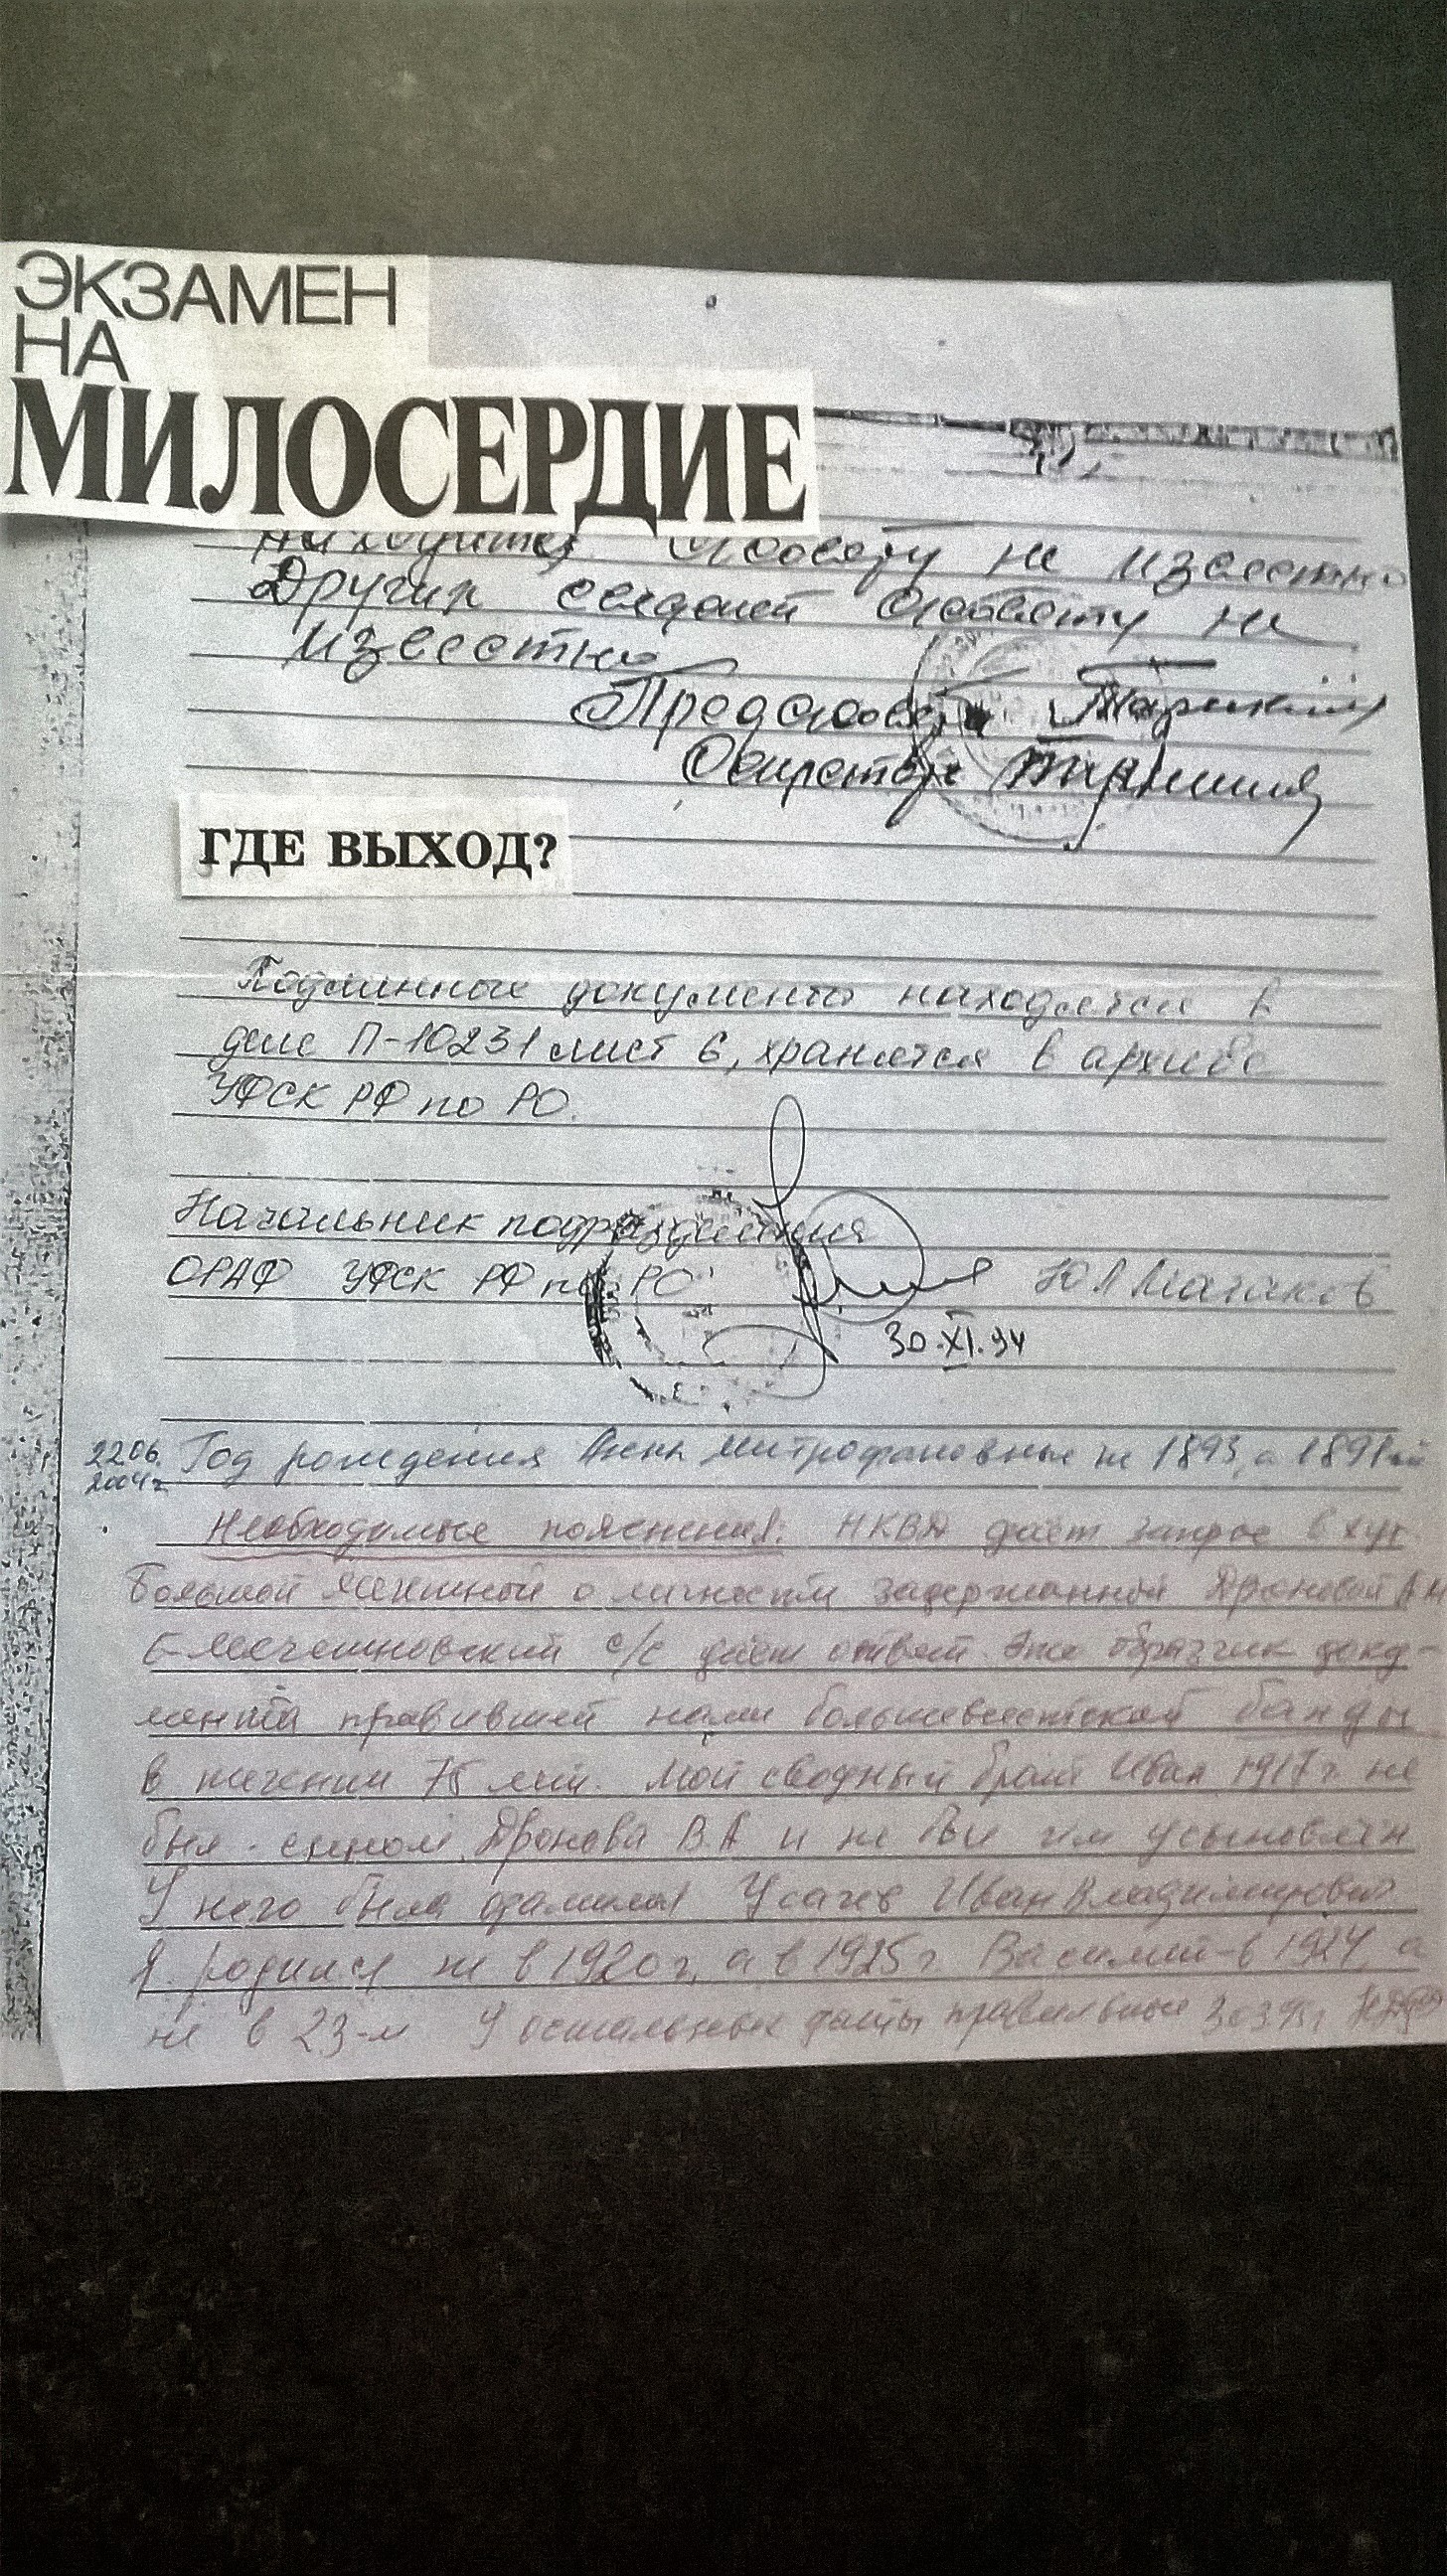 ЭКЗАМЕН
НА
МИЛОСЕРДИЕ
находится с/совету не известно
Других сведений с/совету не
известно
Пред с/совета
Секретарь
ГДЕ ВЫХОД?
Подлинные документы находятся в
деле П-10231 лист 6, хранятся в архиве
УФСК РФ по РО.
Начальник подразделения
ОРАФ УФСК РФ по РО
30.XI.94
22 06. Год рождения Анны Митрофановны не 1893, а 1891й
2004г.
Необходимые пояснения: НКВД даёт запрос в хут
Большой о личности задержанной Дроновой А М
с/с даёт ответ. Это образчик доку-
мента правившей нами большевистской банды
в течении 75 лет. Мой сводный брат Иван 1917г. не
был сыном Дронова В.А и не был им усыновлён
У него была фамилия Усачев Иван Владимирович
Я родился не в 1920г, а в 1925г. Василий-в 1924, а
не в 23-м У остальных даты правильные